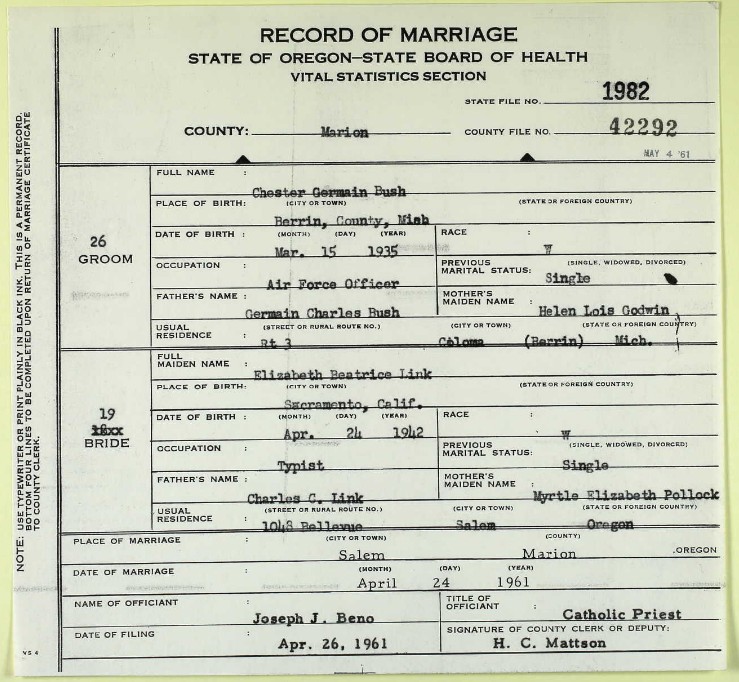 RECORD OF MARRIAGE
STATE OF OREGON—STATE BOARD OF HEALTH
VITAL STATISTICS SECTION
STATE FILE NO. 1982
COUNTY: Marion COUNTY FILE NO. 42292
MAY 4 '61
FULL NAME : Chester Germain Bush
PLACE OF BIRTH: (CITY OR TOWN) (STATE OR FOREIGN COUNTRY)
Berrin, County, Mich
DATE OF BIRTH : (MONTH) (DAY) (YEAR) RACE :
Mar. 15 1935 W
26
GROOM
OCCUPATION : Air Force Officer
PREVIOUS MARITAL STATUS: (SINGLE, WIDOWED, DIVORCED)
Single
FATHER'S NAME : Germain Charles Bush
MOTHER'S MAIDEN NAME : Helen Lois Godwin
USUAL RESIDENCE : (STREET OR RURAL ROUTE NO.) (CITY OR TOWN) (STATE OR FOREIGN COUNTRY)
Rt 3 Coloma (Berrin) Mich.
FULL MAIDEN NAME : Elizabeth Beatrice Link
PLACE OF BIRTH: (CITY OR TOWN) (STATE OR FOREIGN COUNTRY)
Sacramento, Calif.
DATE OF BIRTH : (MONTH) (DAY) (YEAR) RACE :
Apr. 24 1942 W
19
18xx
BRIDE
OCCUPATION : Typist
PREVIOUS MARITAL STATUS: (SINGLE, WIDOWED, DIVORCED)
Single
FATHER'S NAME : Charles C. Link
MOTHER'S MAIDEN NAME : Myrtle Elizabeth Pollock
USUAL RESIDENCE : (STREET OR RURAL ROUTE NO.) (CITY OR TOWN) (STATE OR FOREIGN COUNTRY)
1048 Bellevue Salem Oregon
PLACE OF MARRIAGE : (CITY OR TOWN) (COUNTY)
Salem Marion , OREGON
DATE OF MARRIAGE : (MONTH) (DAY) (YEAR)
April 24 1961
NAME OF OFFICIANT : Joseph J. Beno
TITLE OF OFFICIANT : Catholic Priest
DATE OF FILING : Apr. 26, 1961
SIGNATURE OF COUNTY CLERK OR DEPUTY:
H. C. Mattson
VS 4
NOTE: USE TYPEWRITER OR PRINT PLAINLY IN BLACK INK. THIS IS A PERMANENT RECORD.
BOTTOM FOUR LINES TO BE COMPLETED UPON RETURN OF MARRIAGE CERTIFICATE
TO COUNTY CLERK.